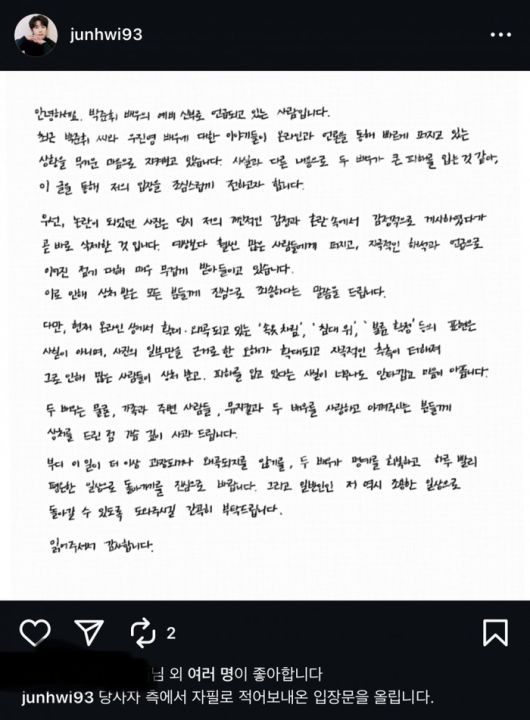 junhwi93
안녕하세요. 박준휘 배우의 예비 신부로 언급되고 있는 사람입니다.
최근 박준휘 씨와 우진영 배우에 대한 이야기들이 온라인과 언론을 통해 빠르게 퍼지고 있는
상황을 무거운 마음으로 지켜보고 있습니다. 사실과 다른 내용으로 두 배우가 큰 피해를 입는 것 같아,
이 글을 통해 저의 입장을 조심스럽게 전하고자 합니다.
우선, 논란이 되었던 사진은 당시 저의 개인적인 감정과 혼란 속에서 감정적으로 게시하였다가
곧 바로 삭제한 것 입니다. 예상보다 훨씬 많은 사람들에게 퍼지고, 자극적인 해석과 언급으로
이어진 점에 대해 매우 무겁게 받아들이고 있습니다.
이로 인해 상처 받은 모든 분들께 진심으로 죄송하다는 말씀을 드립니다.
다만, 현재 온라인 상에서 확대·왜곡되고 있는 '속옷 차림', '침대 위', '불륜 확정' 등의 표현은
사실이 아니며, 사진의 일부만을 근거로 한 오해가 확대되고 자극적인 추측이 더해져
그로 인해 많은 사람들이 상처 받고, 피해를 입고 있다는 사실이 너무나도 안타깝고 마음이 아픕니다.
두 배우는 물론, 가족과 주변 사람들, 뮤지컬과 두 배우를 사랑하고 아껴주시는 분들께
상처를 드린 점 깊이 사과 드립니다.
부디 이 일이 더 이상 과장되거나 왜곡되지를 않기를, 두 배우가 명예를 회복하고 하루 빨리
평온한 일상으로 돌아가기를 진심으로 바랍니다. 그리고 일반인인 저 역시 조용한 일상으로
돌아갈 수 있도록 도와주시길 간곡히 부탁드립니다.
읽어주셔서 감사합니다.
2
님 외 여러 명이 좋아합니다
junhwi93 당사자 측에서 자필로 적어보내온 입장문을 올립니다.